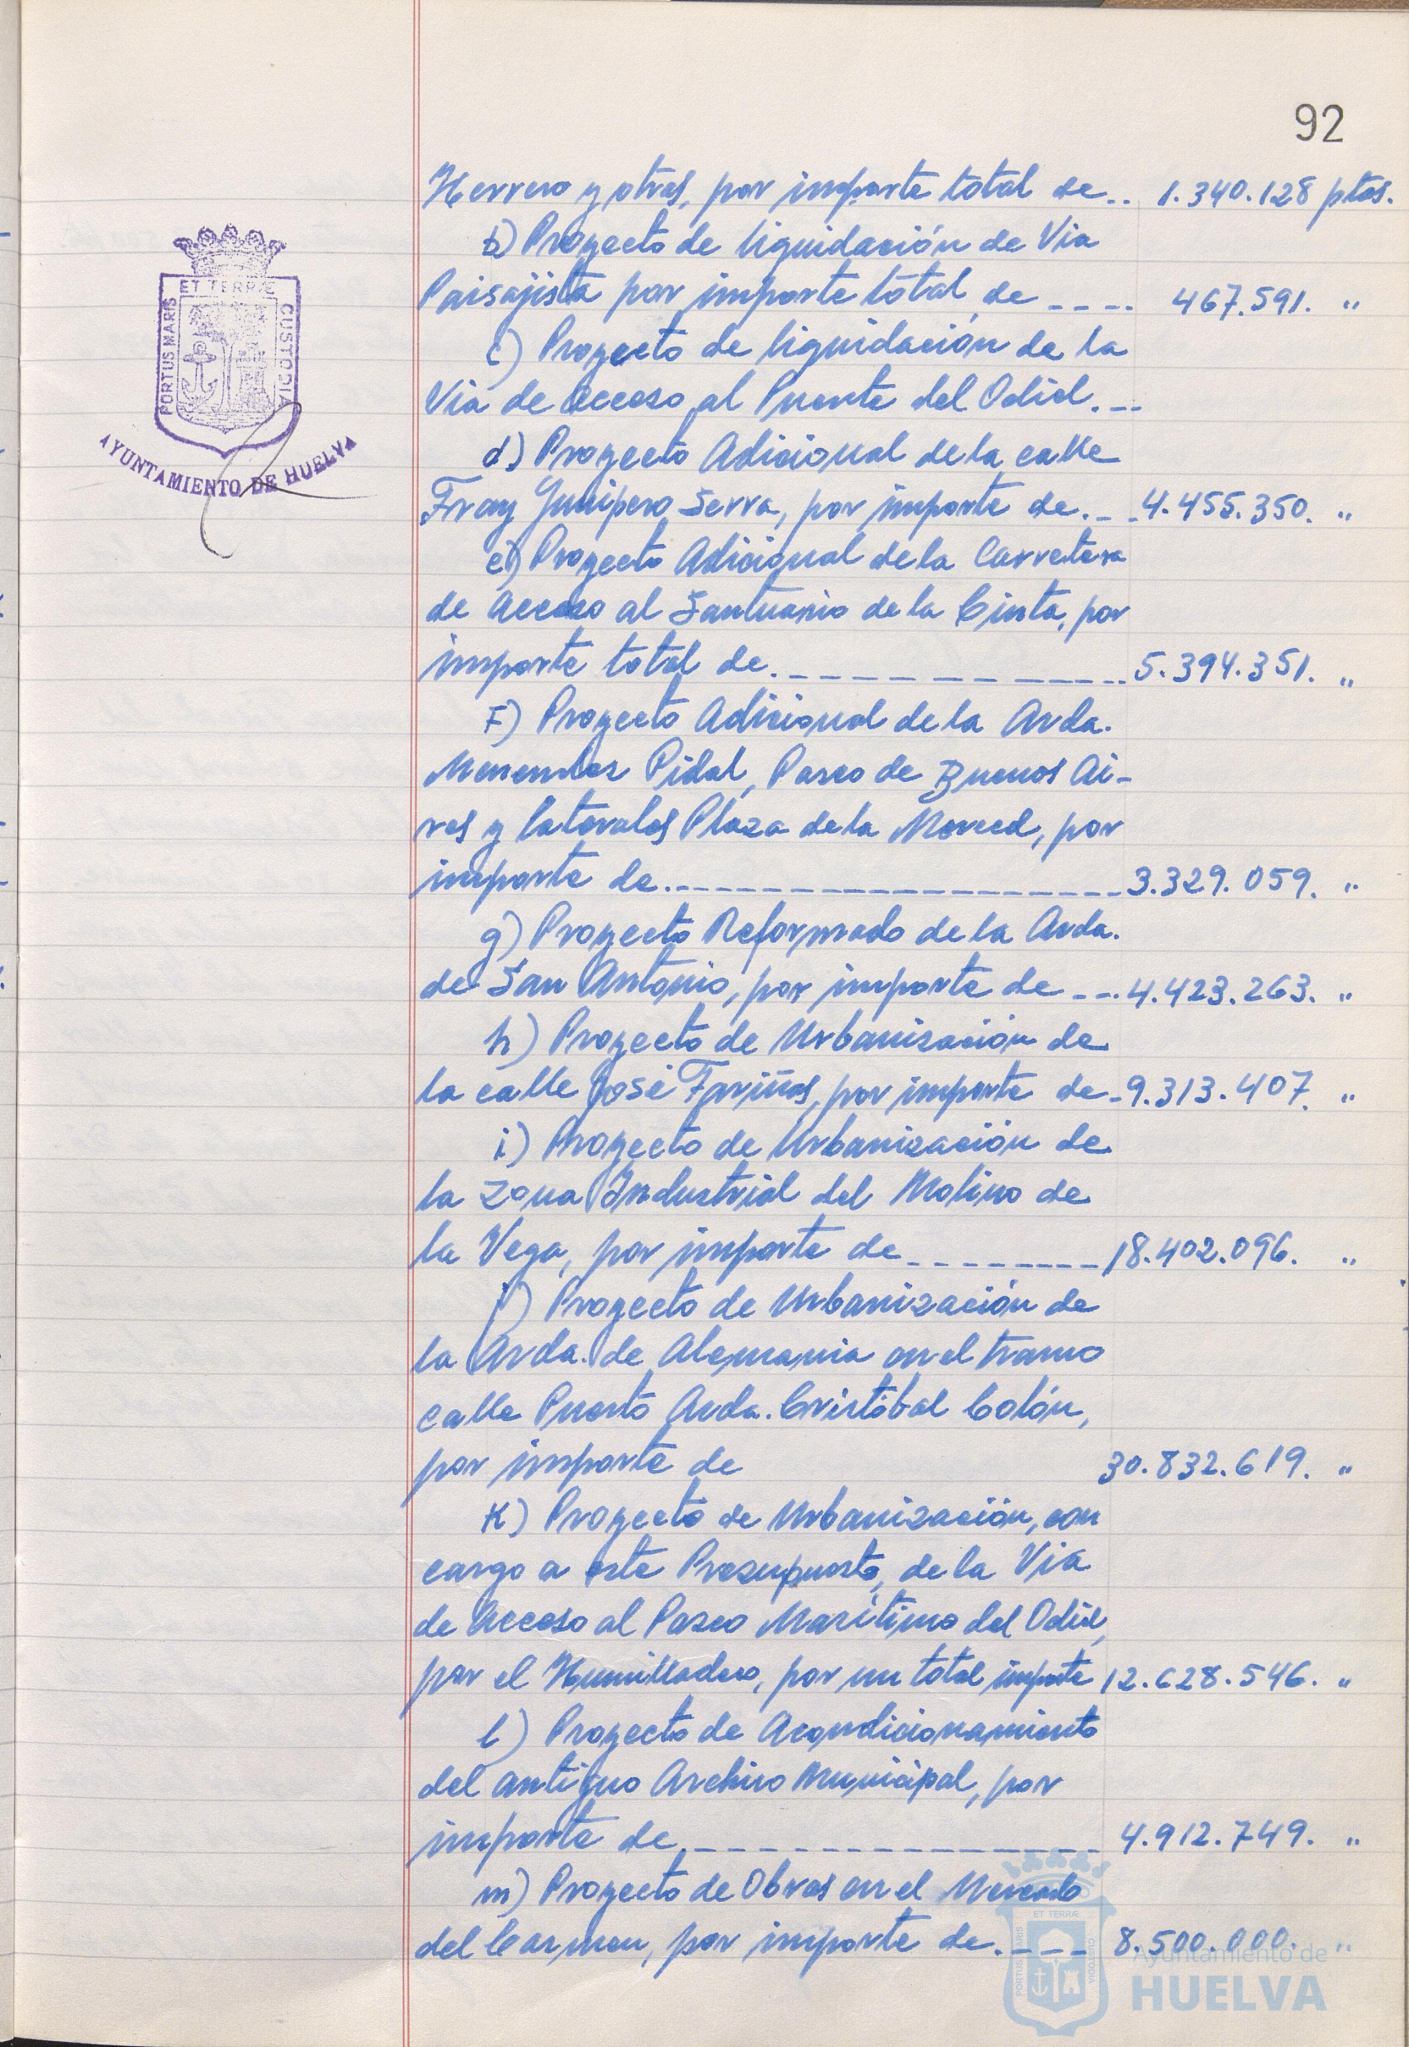 92
Herrero y otros, por importe total de.. 1.340.128 ptas.
b) Proyecto de liquidación de Via
Paisajista por importe total de ---- 467.591. "
c) Proyecto de liquidación de la
Via de acceso al Puente del Odiel. --
d) Proyecto Adicional de la calle
Fray Junipero Serra, por importe de. -- 4.455.350. "
e) Proyecto Adicional de la Carretera
de acceso al Santuario de la Cinta, por
importe total de. ---------- 5.394.351. "
F) Proyecto Adicional de la Avda.
Menendez Pidal, Paseo de Buenos Ai-
res y laterales Plaza de la Merced, por
importe de. ---------------- 3.329.059. "
g) Proyecto Reformado de la Avda.
de San Antonio, por importe de --. 4.423.263. "
h) Proyecto de Urbanización de
la calle José Fariñas, por importe de - 9.313.407. "
i) Proyecto de Urbanización de
la Zona Industrial del Molino de
la Vega, por importe de -------- 18.402.096. "
j) Proyecto de Urbanización de
la Avda. de Alemania en el tramo
calle Puerto Avda. Cristóbal Colón,
por importe de 30.832.619. "
K) Proyecto de Urbanización, con
cargo a este Presupuesto, de la Via
de Acceso al Paseo Marítimo del Odiel,
por el Humilladero, por un total importe 12.628.546. "
l) Proyecto de Acondicionamiento
del antiguo Archivo Municipal, por
importe de -------------- 4.912.749. "
m) Proyecto de Obras en el Mercado
del Carmen, por importe de. ---- 8.500.000. "
PORTUS MARIS ET TERRÆ CUSTODIA
AYUNTAMIENTO DE HUELVA
PORTUS MARIS ET TERRÆ CUSTODIA
Ayuntamiento de
HUELVA